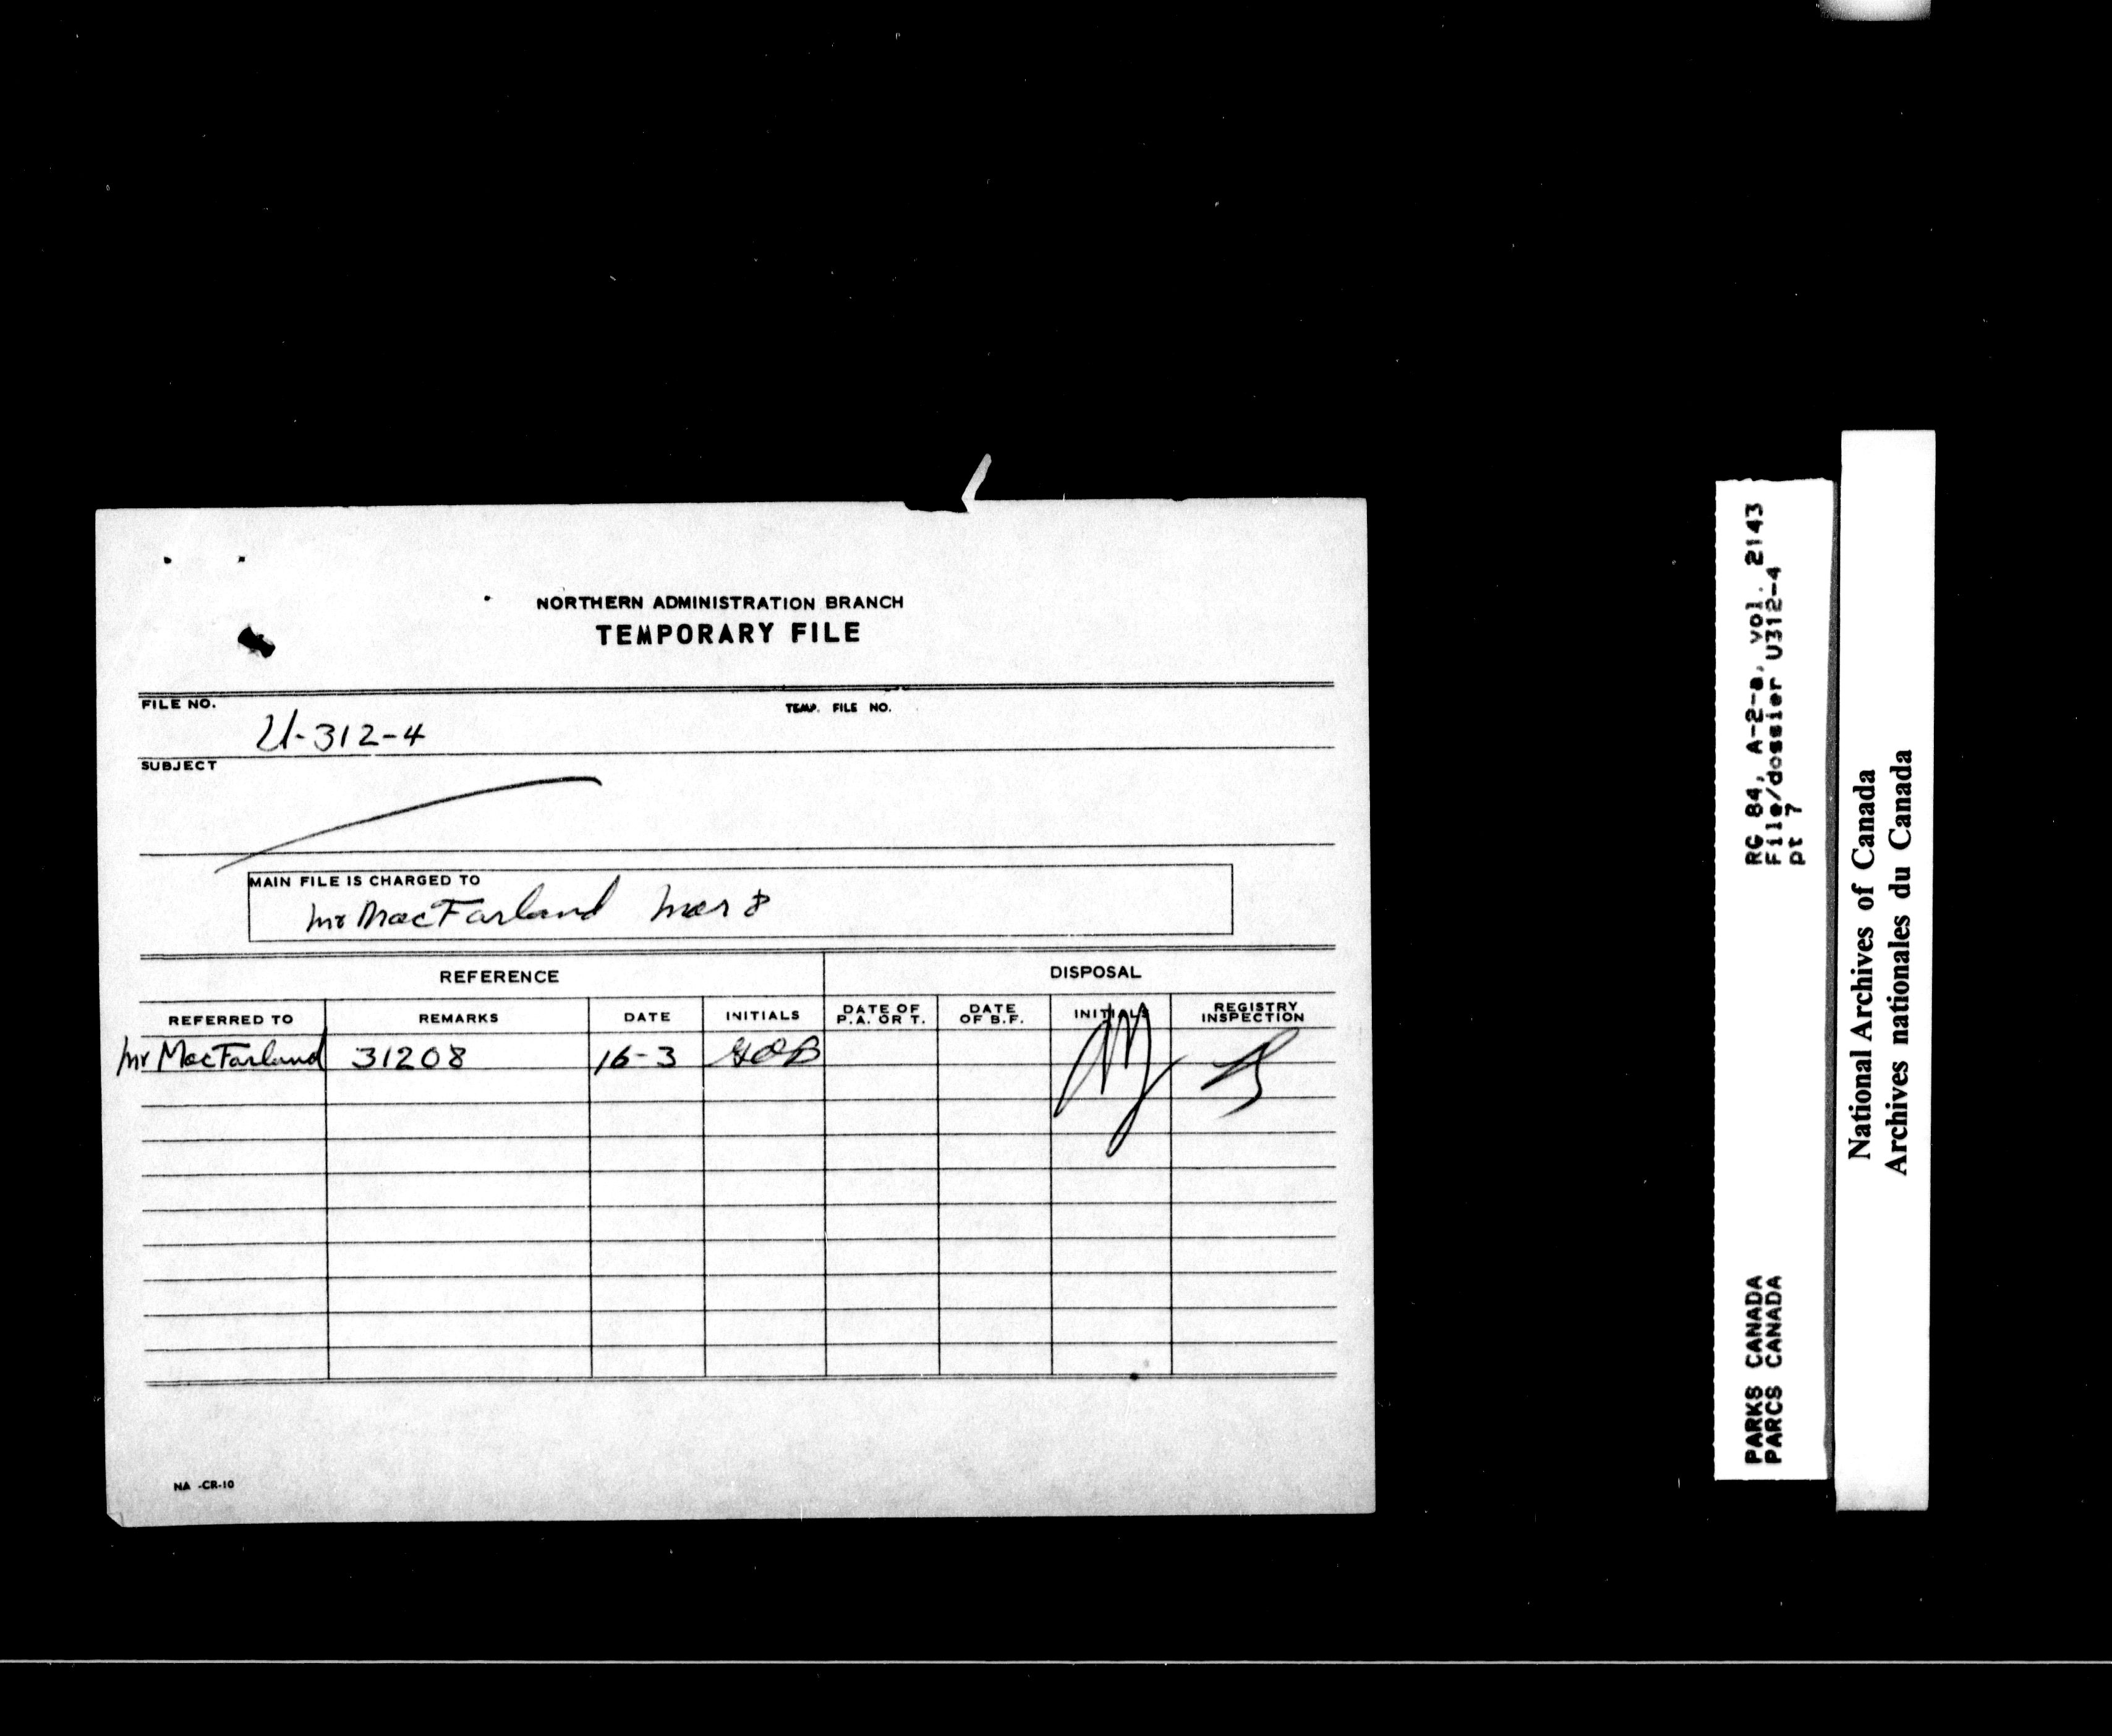 NORTHERN ADMINISTRATION BRANCH
TEMPORARY FILE
FILE NO. TEMP. FILE NO.
U-312-4
SUBJECT
MAIN FILE IS CHARGED TO
Mr MacFarland Mar 8
REFERENCE DISPOSAL
REFERRED TO REMARKS DATE INITIALS DATE OF P.A. OR T. DATE OF B.F. INITIALS REGISTRY INSPECTION
Mr MacFarland 31208 16-3
NA -CR-10
RG 84, A-2-a, vol. 2143
File/dossier U312-4
pt 7
PARKS CANADA
PARCS CANADA
National Archives of Canada
Archives nationales du Canada